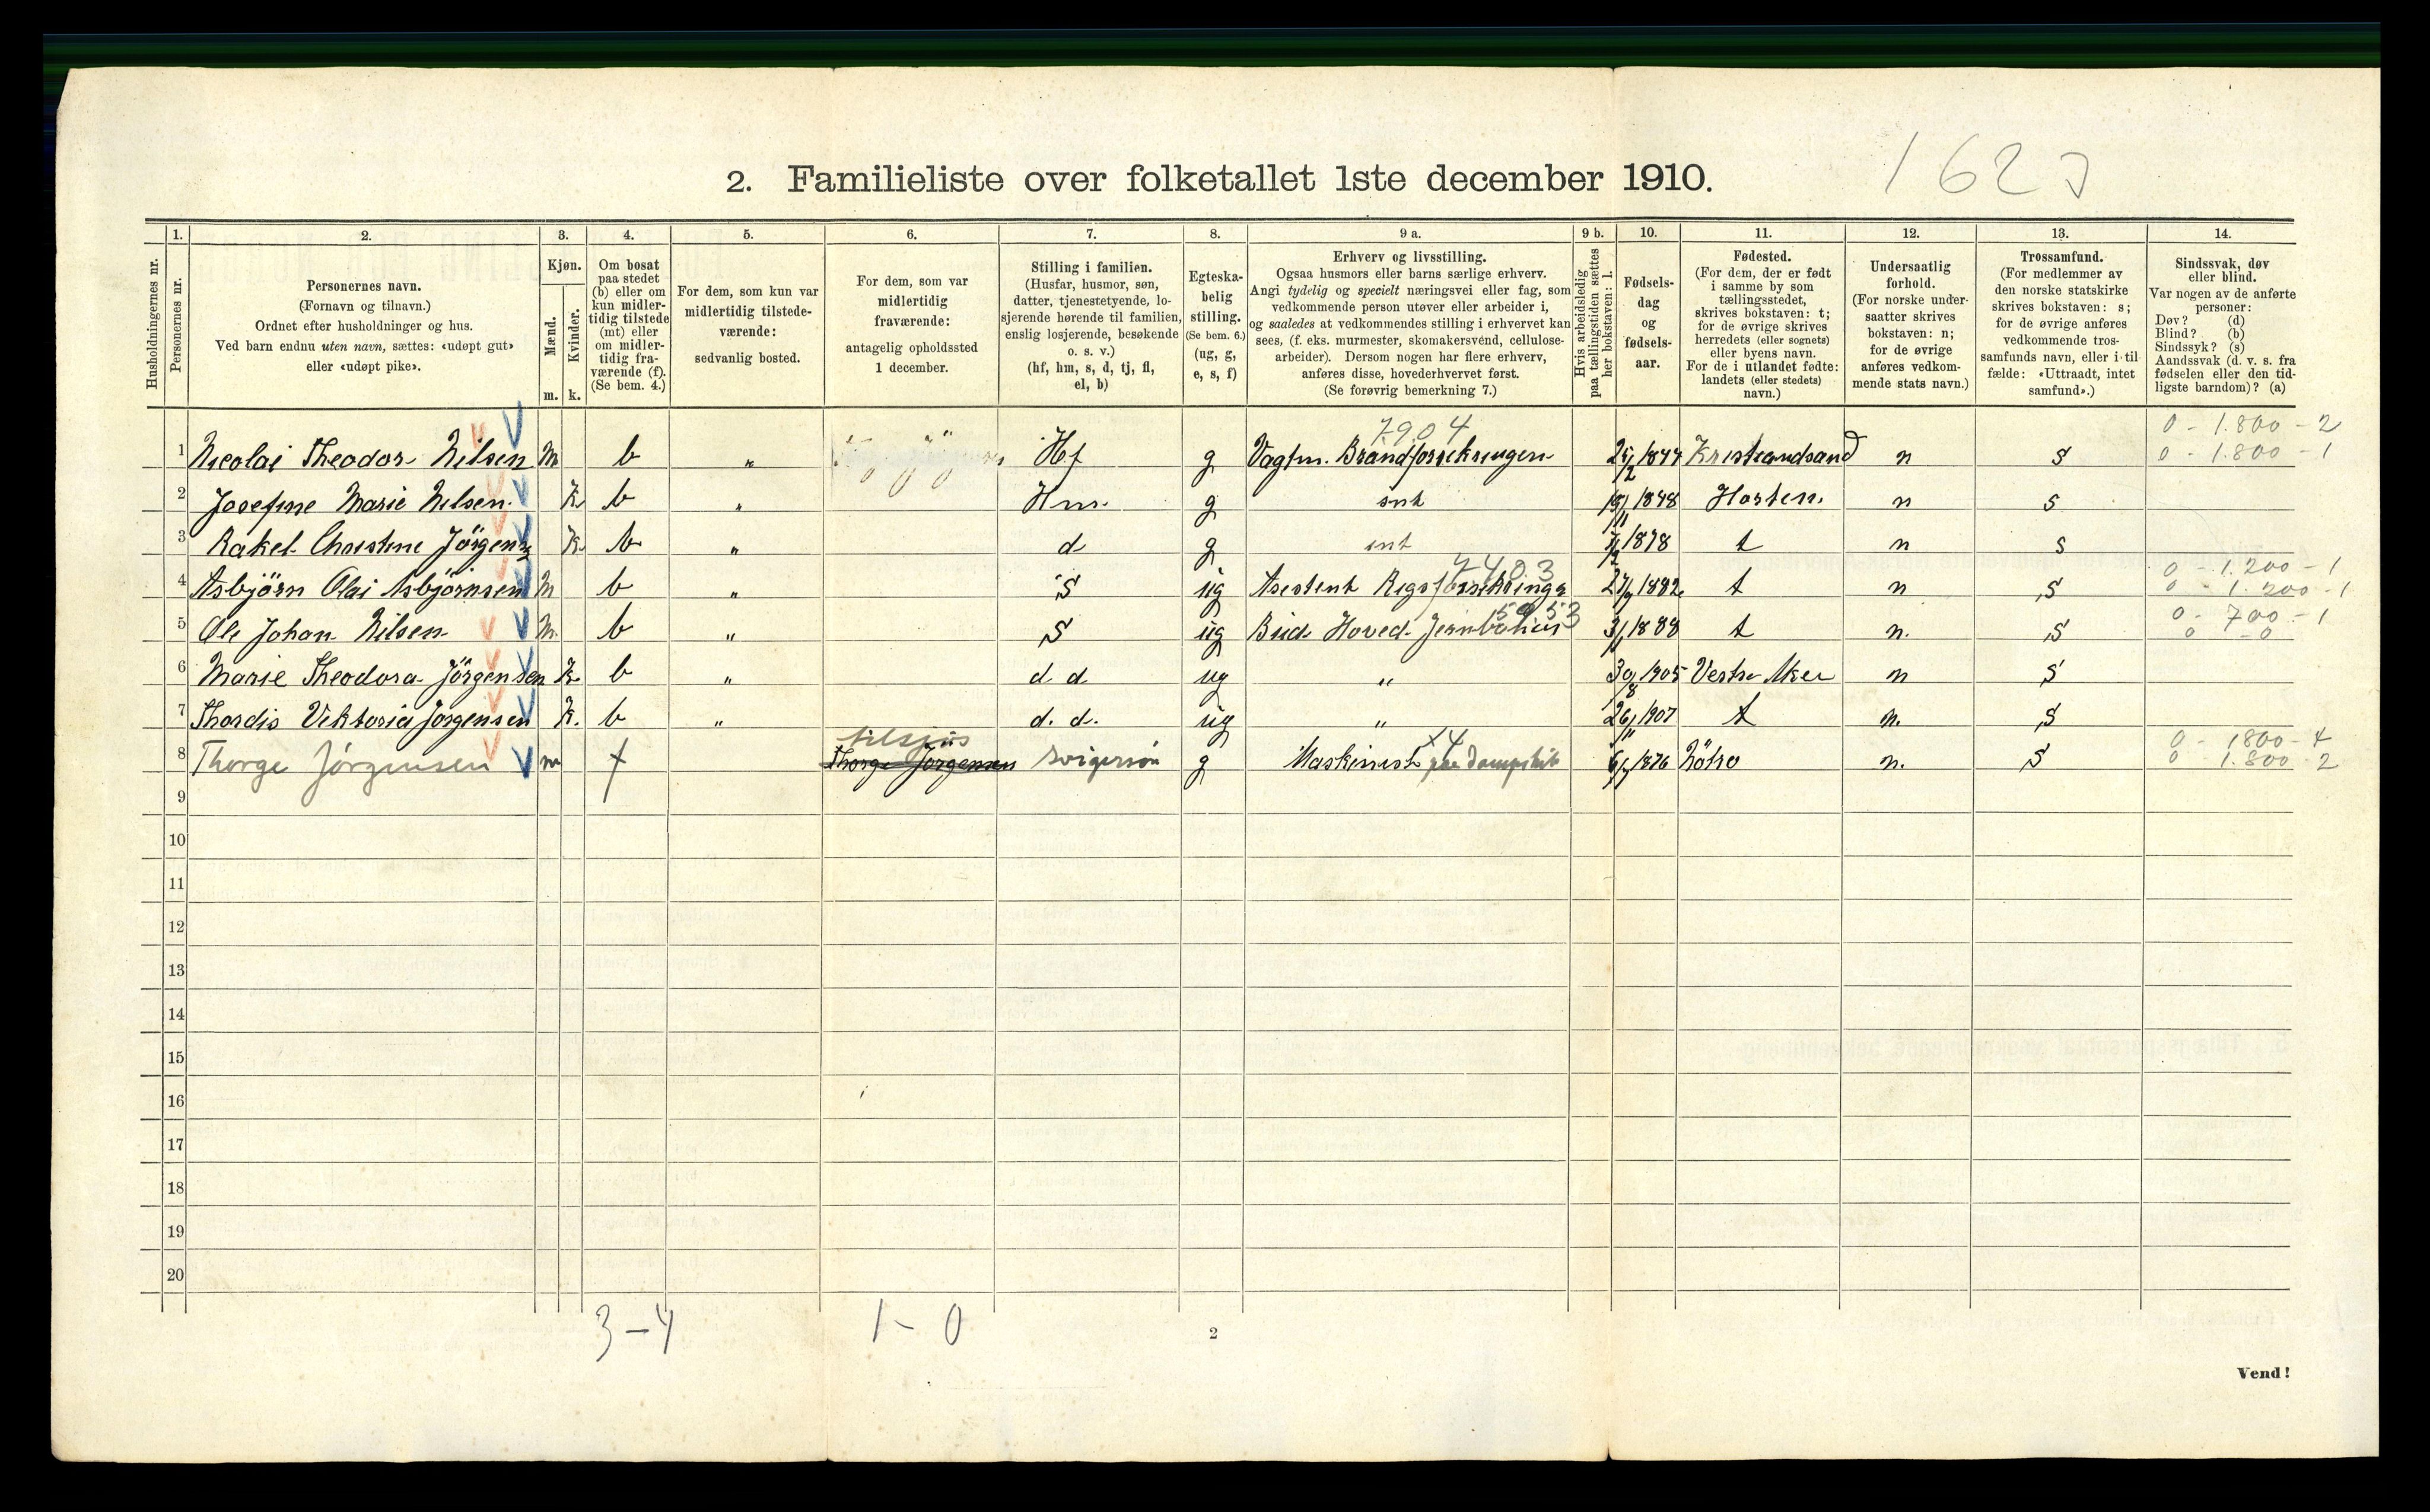 1627
2. Familieliste over folketallet 1ste december 1910.
Husholdningernes nr.
1. Personernes nr.
2. Personernes navn. (Fornavn og tilnavn.) Ordnet efter husholdninger og hus. Ved barn endnu uten navn, sættes: «udøpt gut» eller «udøpt pike».
3. Kjøn. Mænd. m. Kvinder. k.
4. Om bosat paa stedet (b) eller om kun midlertidig tilstede (mt) eller om midlertidig fraværende (f). (Se bem. 4.)
5. For dem, som kun var midlertidig tilstedeværende: sedvanlig bosted.
6. For dem, som var midlertidig fraværende: antagelig opholdssted 1 december.
7. Stilling i familien. (Husfar, husmor, søn, datter, tjenestetyende, losjerende hørende til familien, enslig losjerende, besøkende o. s. v.) (hf, hm, s, d, tj, fl, el, b)
8. Egteskabelig stilling. (Se bem. 6.) (ug, g, e, s, f)
9 a. Erhverv og livsstilling. Ogsaa husmors eller barns særlige erhverv. Angi tydelig og specielt næringsvei eller fag, som vedkommende person utøver eller arbeider i, og saaledes at vedkommendes stilling i erhvervet kan sees, (f. eks. murmester, skomakersvend, cellulosearbeider). Dersom nogen har flere erhverv, anføres disse, hovederhvervet først. (Se forøvrig bemerkning 7.)
9 b. Hvis arbeidsledig paa tællingstiden sættes her bokstaven: l.
10. Fødselsdag og fødselsaar.
11. Fødested. (For dem, der er født i samme by som tællingsstedet, skrives bokstaven: t; for de øvrige skrives herredets (eller sognets) eller byens navn. For de i utlandet fødte: landets (eller stedets) navn.)
12. Undersaatlig forhold. (For norske undersaatter skrives bokstaven: n; for de øvrige anføres vedkommende stats navn.)
13. Trossamfund. (For medlemmer av den norske statskirke skrives bokstaven: s; for de øvrige anføres vedkommende trossamfunds navn, eller i tilfælde: «Uttraadt, intet samfund».)
14. Sindssvak, døv eller blind. Var nogen av de anførte personer: Døv? (d) Blind? (b) Sindssyk? (s) Aandssvak (d. v. s. fra fødselen eller den tidligste barndom)? (a)
7904 0 - 1.800 - 2
1 Nicolai Theodor Nilsen M b " Hf g Vagtm. Brandforsikringen 1844 Kristiandsand n S 0 - 1.800 - 1
2 Josefine Marie Nilsen K b " Hm g int 1848 Horten n s
3 Rakel Christine Jörgens K b " d g int 1878 t n s
7403 0 - 1.200 - 1
4 Asbjörn Olai Asbjörnsen M b " S ug Asestent Rigsforsikringe 1882 t n S 0 - 1.200 - 1
5953 0 - 700 - 1
5 Ole Johan Nilsen M b " S ug Bud Hoved 1888 t n. S 0 - 0
6 Marie Theodora Jörgensen K b " d d ug " 30/8 1905 Vestre Aker n S
7 Thordis Viktoria Jorgensen K. b " d. d. ug " 26/11 1907 t n. S
tilsjøs x4 0 - 1800 - 4
8 Thorge Jörgensen m f Thorge Jörgensen svigersøn g Maskinist paa Dampskib 1876 n. S 0 - 1.800 - 2
9
10
11
12
13
14
15
16
17
18
19
20
3-4 1-0
2
Vend!